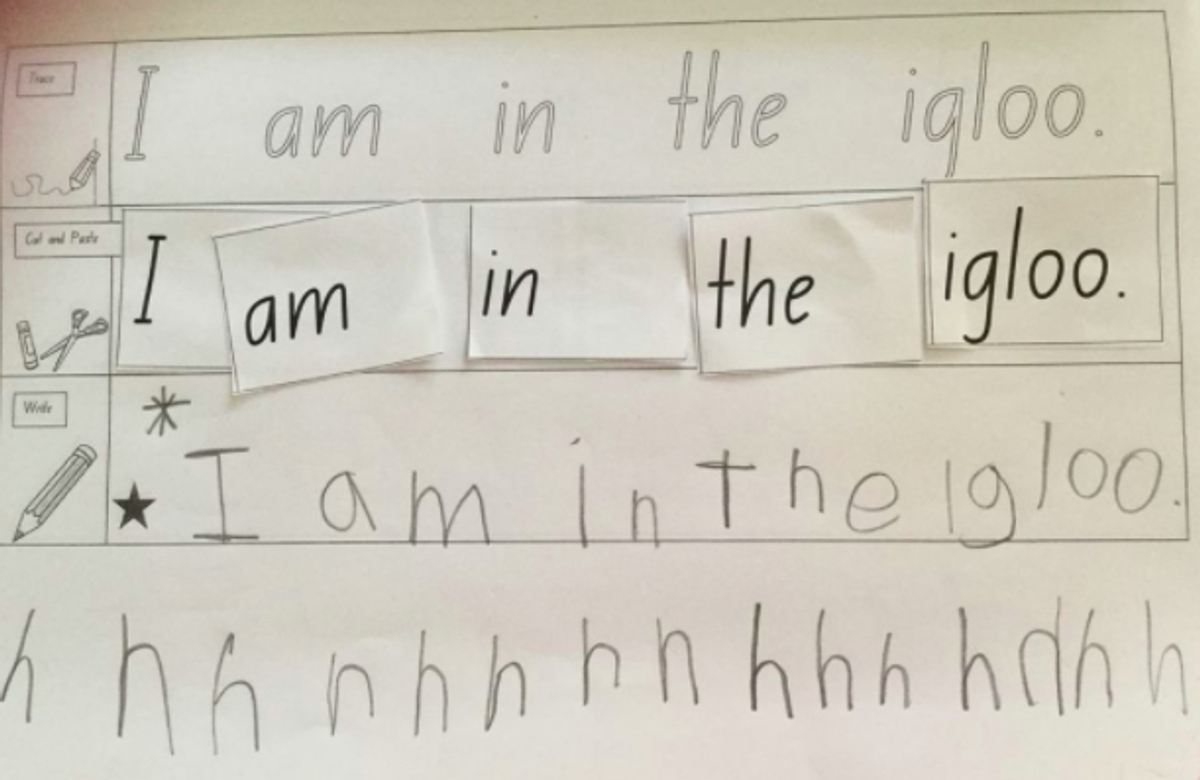 Trace
I am in the igloo.
Cut and Paste
I am in the igloo.
Write
I am in the Igloo.
h h h n h h h n h h h h d h h